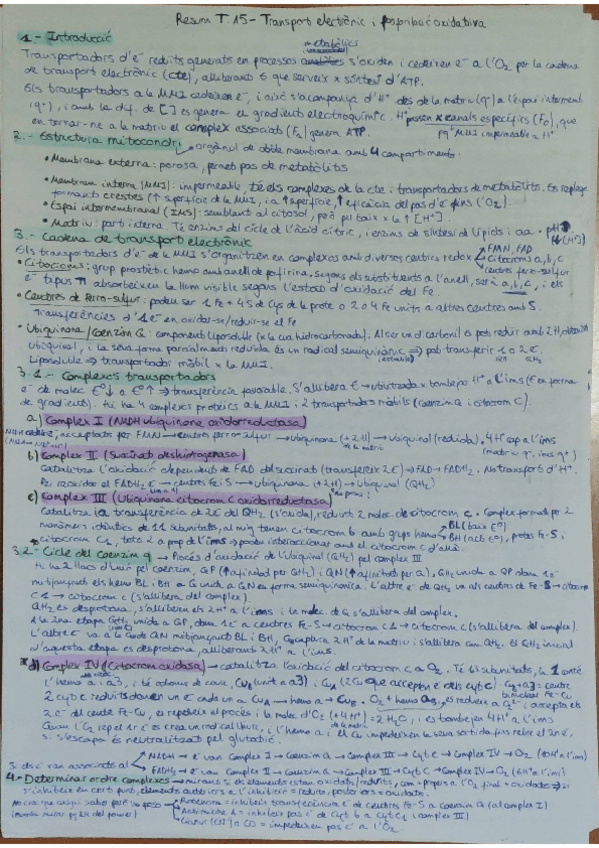 Resum T.15 - Transport electrònic i fosforilació oxidativa
1.- Introducció
metabòlics
Transportadors d'e⁻ reduïts generats en processos s'oxiden i cedeixen e⁻ a l'O₂ per la cadena
de transport electrònic (cte), alliberant G que serveix x síntesi d'ATP.
Els transportadors a la MMI cedeixen e⁻, i això s'acompanya d'H⁺ des de la matriu (q⁻) a l'espai intermemb
(q⁺), i amb la de [ ] es genera el gradient electroquímic. H⁺ passen x canals específics (Fo), que
en tornar-ne a la matriu el complex associat (F₁) genera ATP. pq MMI impermeable a H⁺
2.- Estructura mitocondri → orgànul de doble membrana amb 4 compartiments:
• Membrana externa: porosa, permet pas de metabòlits
• Membrana interna (MMI): impermeable, té els complexes de la cte i transportadors de metabòlits. Es replega
formant crestes (↑ superfície de la MMI, i a ↑ superfície, ↑ eficàcia del pas d'e⁻ fins l'O₂).
• Espai intermembranal (IMS): semblant al citosol, però pH baix x la ↑ [H⁺].
• Matriu: part interna. Té enzims del cicle de l'àcid cítric, i enzims de síntesi de lípids i aa.
3.- Cadena de transport electrònic
FMN, FAD
Els transportadors d'e⁻ de la MMI s'organitzen en complexos amb diversos centres redox citocroms a, b, c
centres ferro-sulfur
• Citocroms: grup prostètic hemo amb anell de porfirina, segons els substituents a l'anell, serà a, b, c, i els
e⁻ tipus π absorbeixen la llum visible segons l'estat d'oxidació del Fe.
• Centres de ferro-sulfur: poden ser 1 Fe + 4 S de Cys de la prote o 2 o 4 Fe units a altres centres amb S.
Transferències d'1 e⁻ en oxidar-se/reduir-se el Fe
• Ubiquinona / coenzim Q: component liposoluble (x la cua hidrocarbonada). Al ser un dicarbonil es pot reduir amb 2H, obtenint
ubiquinol, i la seva forma parcialment reduïda és un radical semiquinònic (estable) ⇒ pot transferir 1 o 2 e⁻.
Liposoluble ⇒ transportador mòbil x la MMI.
3.1.- Complexos transportadors
e⁻ de molec E°↓ a E°↑ ⇒ transferència favorable. S'allibera E → utilitzada x bombejar H⁺ a l'ims (E en forma
de gradient). Hi ha 4 complexos proteics a la MMI i 2 transportadors mòbils (coenzim Q i citocrom C).
a) Complex I (NADH ubiquinona oxidorreductasa)
acceptats per FMN → centres ferro sulfur → ubiquinona (+2H) → ubiquinol (reduïda), 4H⁺ cap a l'ims
(matriu q⁻, ims q⁺)
b) Complex II (Succinat deshidrogenasa)
Catalitza l'oxidació dependent de FAD del succinat (transfereix 2e⁻) → FAD → FADH₂. No transport d'H⁺.
Per reoxidar el FADH₂ e⁻ → centres Fe-S → ubiquinona (+2H) → ubiquinol (QH₂)
c) Complex III (Ubiquinona citocrom C oxidorreductasa)
Catalitza la transferència de 2e⁻ del QH₂ (s'oxida), reduint 2 molec de citocrom c. Complex format per 2
monòmers idèntics de 11 subunitats, al mig tenen citocrom b amb grups hemo BL (baix E°)
BH (alt E°), protes Fe-S i
citocrom C₁, tots 2 a prop de l'ims ⇒ poden interaccionar amb el citocrom C d'allà.
3.2.- Cicle del coenzim Q → Procés d'oxidació de l'ubiquinol (QH₂) pel complex III
Hi ha 2 llocs d'unió pel coenzim, QP (↑ afinitat per QH₂) i QN (↑ afinitat per Q). QH₂ unida a QP dona 1e⁻
mitjançant els hemo BL i BH a Q unida a QN en forma semiquinònica. L'altre e⁻ de QH₂ va als centres de Fe-S → citocrom
C1 → citocrom c (s'allibera del complex).
QH₂ es desprotona, s'alliberen els 2H⁺ a l'ims i la molec. de Q s'allibera del complex.
A la 2na etapa QH₂ unida a QP, dona 1e⁻ a centres Fe-S → citocrom C1 → citocrom c (s'allibera del complex).
L'altre e⁻ va a la Q de QN mitjançant BL i BH, Q captura 2H⁺ de la matriu i s'allibera com QH₂. El QH₂ inicial
d'aquesta etapa es desprotona, alliberant 2H⁺ a l'ims.
d) Complex IV (Citocrom oxidasa) → catalitza l'oxidació del citocrom c a O₂. Té 13 subunitats, la 1 conté
l'hemo a i a3, i té àtoms de coure, CuB (unit a a3) i CuA (2 Cu que accepten e⁻ dels cyt c) CuB + a3 = centre
binuclear Fe-Cu
2 cyt c reduïts donen un e⁻ cada un a CuA → hemo a → CuB. O₂ + hemo a3, es redueix a O₂²⁻ i accepta els
2e⁻ del centre Fe-Cu, es repeteix el procés i la molec d'O₂ (+4H⁺) = 2H₂O, i es bombejen 4H⁺ a l'ims
Quan l'O₂ rep el 1r e⁻ es crea un radical lliure, i l'hemo a i el Cu impedeixen la seva sortida fins rebre el 2n e⁻,
si s'escapa és neutralitzat pel glutatió.
NADH → e⁻ van Complex I → coenzim Q → complex III → Cyt c → complex IV → O₂ (10H⁺ a l'ims)
FADH₂ → e⁻ van Complex II → coenzim Q → Complex III → Cyt c → Complex IV → O₂ (6H⁺ a l'ims)
4.- Determinar ordre complexos → mirar si els elements estan oxidats/reduïts, com + propers a l'O₂ final + oxidats ⇒ si
s'inhibeix en cert punt, elements anteriors a l'inhibidor = reduïts, posteriors = oxidats.
Rotenona = inhibeix transferència e⁻ de centres Fe-S a coenzim Q (al complex I)
Antimicina A = inhibeix pas e⁻ de Cyt b a Cyt C1 (complex III)
Cianur (CN⁻) o CO = impedeixen pas e⁻ a l'O₂.